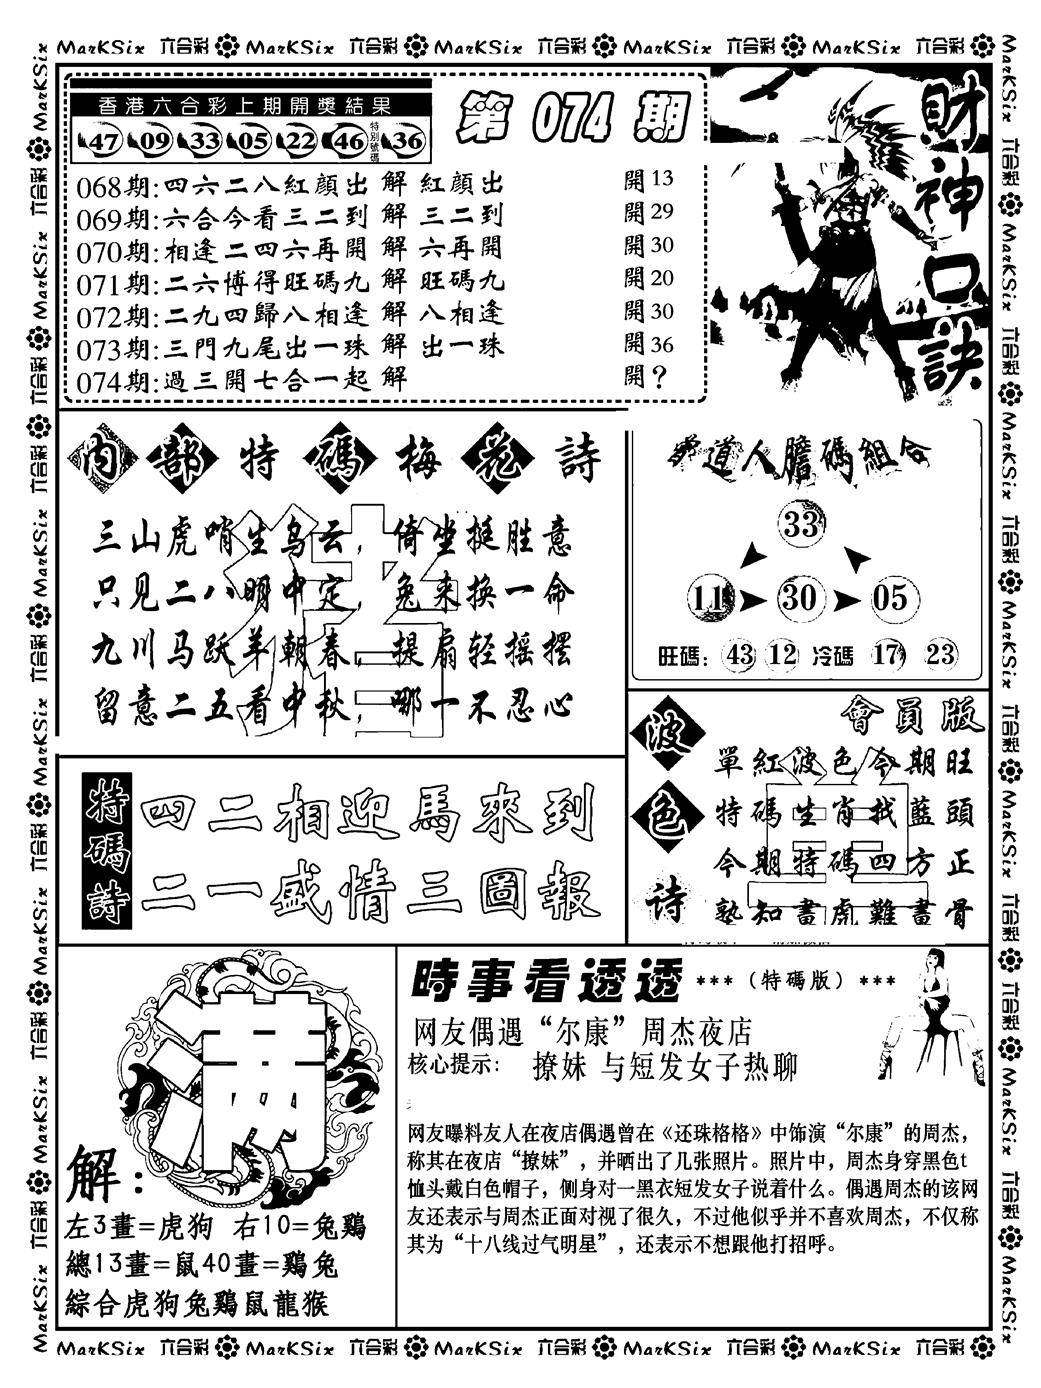 MarKSix 六合彩 MarKSix 六合彩 MarKSix 六合彩 MarKSix 六合彩 MarKSix 六合彩
香港六合彩上期開獎結果
47 09 33 05 22 46 特別號碼 36
第 074 期
068期:四六二八紅顏出 解 紅顏出 開13
069期:六合今看三二到 解 三二到 開29
070期:相逢二四六再開 解 六再開 開30
071期:二六博得旺碼九 解 旺碼九 開20
072期:二九四歸八相逢 解 八相逢 開30
073期:三門九尾出一珠 解 出一珠 開36
074期:過三開七合一起 解 開?
財神口訣
內部特碼梅花詩
三山虎哨生乌云，倚坐挺胜意
只见二八明中定，兔来换一命
九川马跃羊朝春，提扇轻摇摆
留意二五看中秋，哪一不忍心
道人膽碼組合
33
11 30 05
旺碼: 43 12 冷碼 17 23
特碼詩
四二相迎馬來到
二一盛情三圖報
波色诗
會員版
單紅波色今期旺
特碼生肖找藍頭
今期特碼四方正
熟知書虎難畫骨
满
解:
左3畫=虎狗 右10=兔鷄
總13畫=鼠40畫=鷄兔
綜合虎狗兔鷄鼠龍猴
時事看透透 ***（特碼版）***
网友偶遇“尔康”周杰夜店
核心提示: 撩妹 与短发女子热聊
网友曝料友人在夜店偶遇曾在《还珠格格》中饰演“尔康”的周杰，
称其在夜店“撩妹”，并晒出了几张照片。照片中，周杰身穿黑色t
恤头戴白色帽子，侧身对一黑衣短发女子说着什么。偶遇周杰的该网
友还表示与周杰正面对视了很久，不过他似乎并不喜欢周杰，不仅称
其为“十八线过气明星”，还表示不想跟他打招呼。
MarKSix 六合彩 MarKSix 六合彩 MarKSix 六合彩 MarKSix 六合彩 MarKSix 六合彩